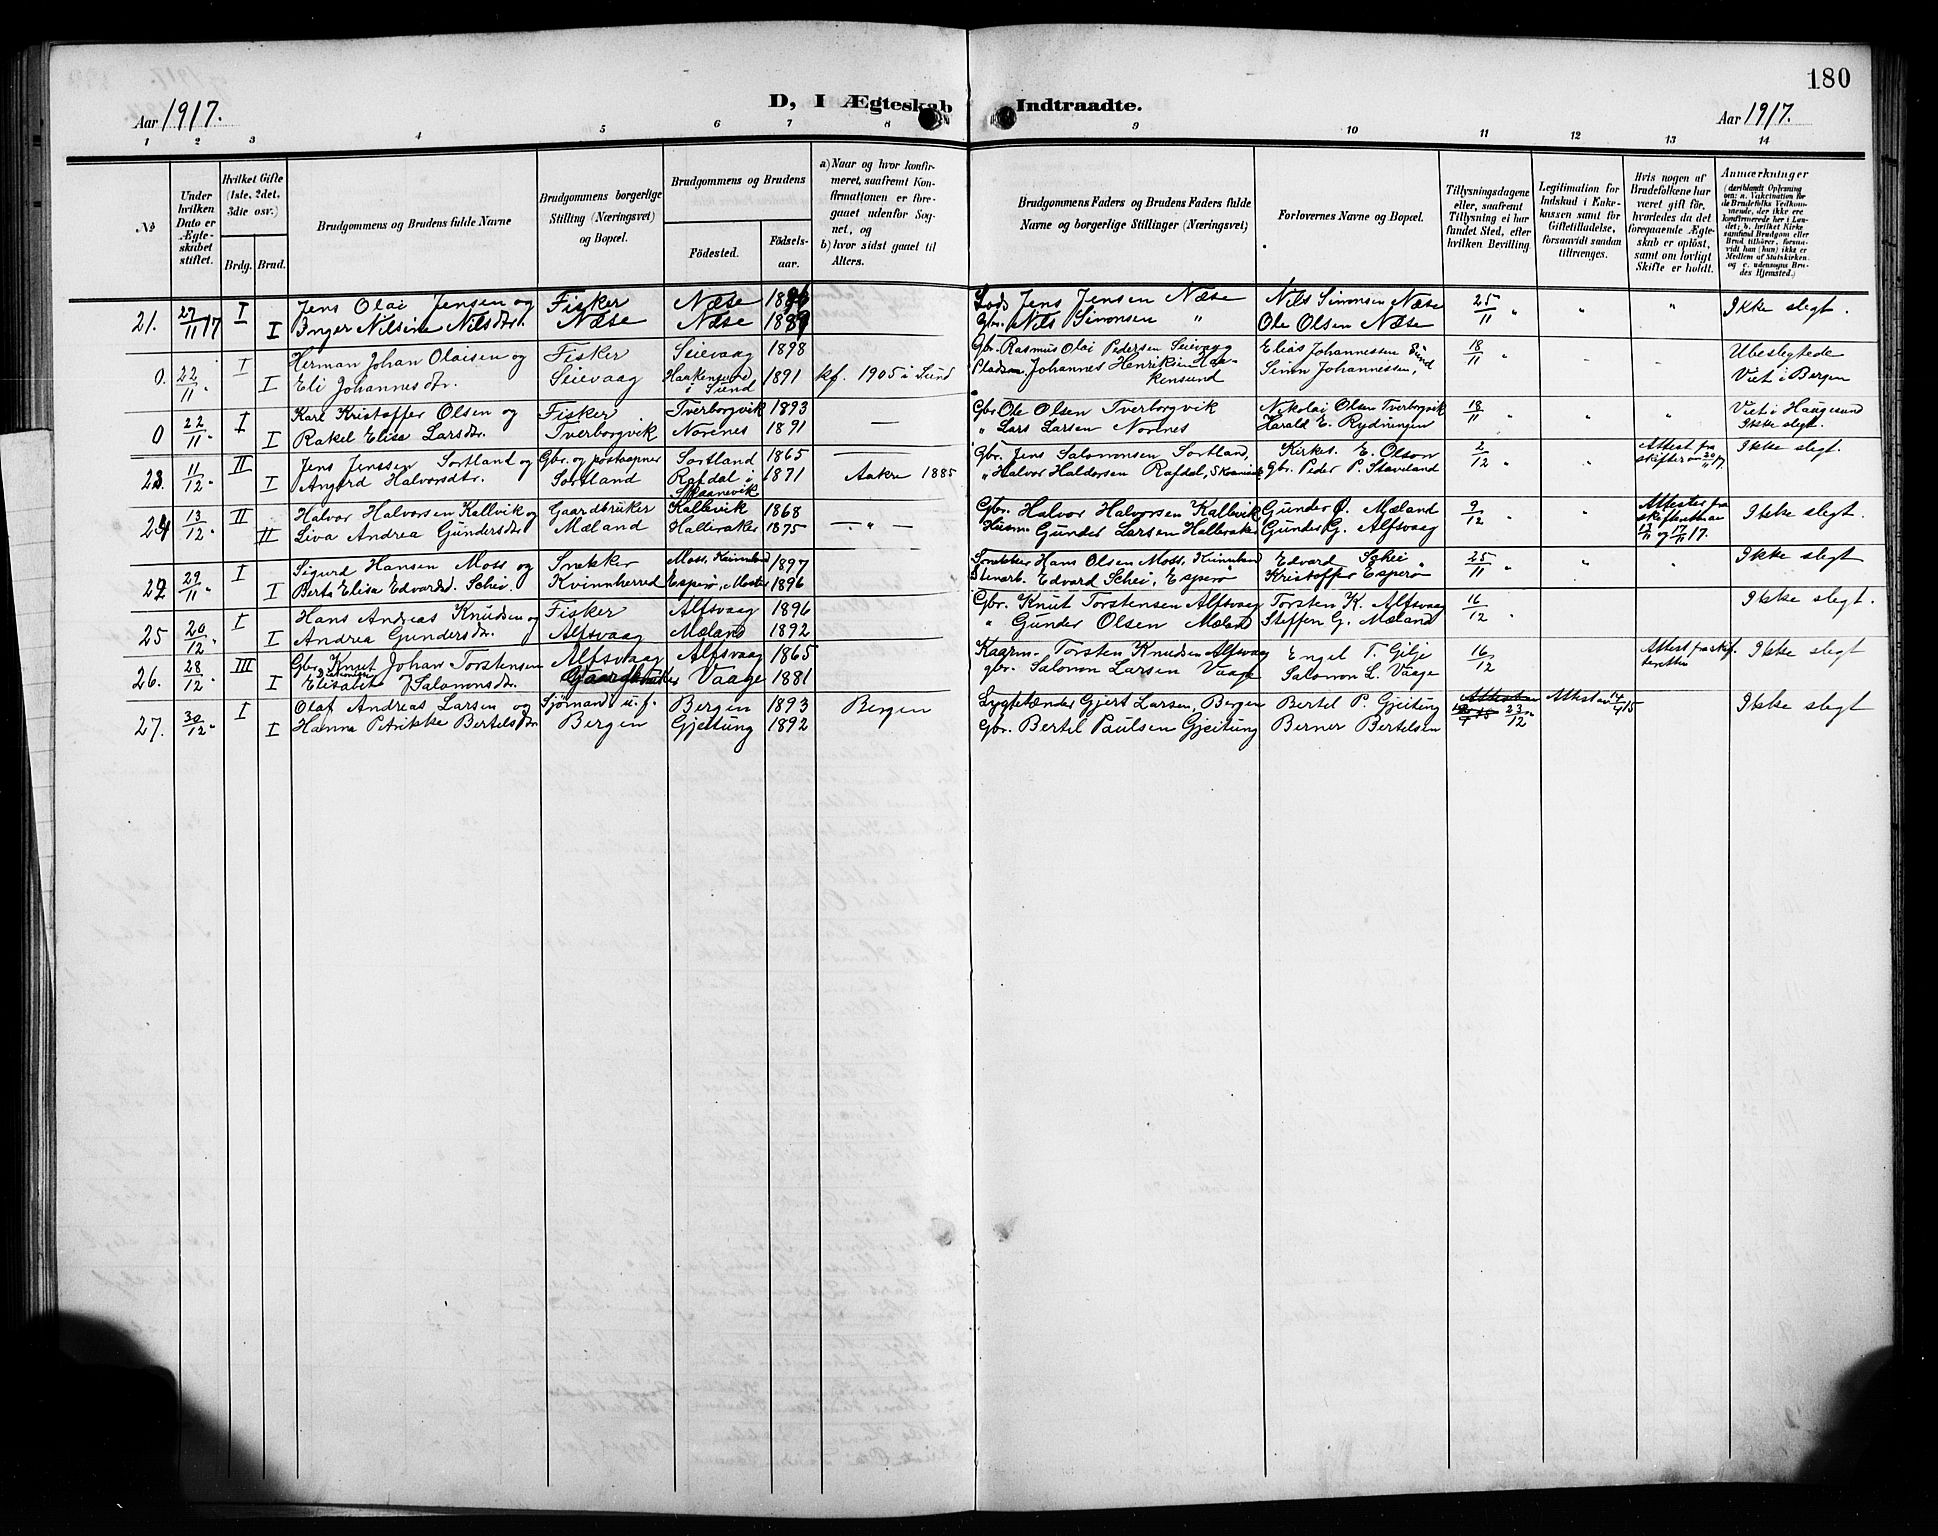 180
D, I Ægteskab Indtraadte.
Aar 1917.
Aar 1917.
1 2 3 4 5 6 7 8 9 10 11 12 13 14
№
Under hvilken Dato er Ægteskabet stiftet.
Hvilket Gifte (1ste, 2det, 3die osv.)
Brdg. Brud.
Brudgommens og Brudens fulde Navne
Brudgommens borgerlige Stilling (Næringsvei) og Bopæl.
Brudgommens og Brudens
Fødested.
Fødselsaar.
a) Naar og hvor konfirmeret, saafremt Konfirmationen er foregaaet udenfor Sognet, og
b) hvor sidst gaaet til Alters.
Brudgommens Faders og Brudens Faders fulde Navne og borgerlige Stillinger (Næringsvei)
Forlovernes Navne og Bopæl.
Tillysningsdagene eller, saafremt Tillysning ei har fundet Sted, efter hvilken Bevilling
Legitimation for Indskud i Enkekassen samt for Giftetilladelse, forsaavidt saadan tiltrænges.
Hvis nogen af Brudefolkene har været gift før, hvorledes da det foregaaende Ægteskab er opløst, samt om lovligt Skifte er holdt.
Anmærkninger
(deriblandt Oplysning om: a. Vaksination for de Brudefolks Vedkommende, der ikke ere konfirmerede her i Landet; b. hvilket Kirkesamfund Brudgom eller Brud tilhører, forsaavidt han (hun) ikke er Medlem af Statskirken, og c. udensogns Brudes Hjemsted.
21. 27/11 17 I Jens Olai Jensen og Fisker Næse 1886 Lods Jens Jensen Næse Nils Simonsen Næse 25/11 " " " Ikke slegt.
I Inger Nilsine Nilsdtr. Næse Næse 1889 Gbr. Nils Simonsen " Ole Olsen Næse
0. 22/11 " I Herman Johan Olaisen og Fisker Seievaag 1898 Gbr. Rasmus Olai Pedersen Seievaag Elias Johannessen Sund 18/11 " Ubeslegtede
I Eli Johannesdtr. Seievaag Haakensund i Sund 1891 kf. 1905 i Sund Pladsm. Johannes Henriksen Haakensund Simon Johannessen, " Viet i Bergen
0 22/11 " I Karl Kristoffer Olsen og Fisker Tverborgvik 1893 Gbr. Ole Olsen Tverborgvik Nikolai Olsen Tverborgvik 18/11 " " " Viet i Haugesund
I Rakel Elisa Larsdtr. Tverborgvik Norenes 1891 — " Lars Larsen Norenes Harald E. Rydningen Ikke slegt.
23. 11/12 " II Jens Jenssen Sortland og Gbr. og postaapner Sortland 1865 Gbr. Jens Salomonsen Sortland, Kirkes. E. Olson 2/12 " " Attest fra skifteret 20/11 17 Ikke slegt.
I Angerd Halvorsdtr. Sortland Rafdal i Skaanevik 1871 Aakre 1885 " Halvor Haldorsen Rafdal, Skaanevik Gbr. Peder P. Staveland
24 13/12 " II Halvor Halvorsen Kallvik og Gaardbruker Kallevik 1868 Gbr. Halvor Halvorsen Kallevik Gunder Ø. Mæland 9/12 " " Attester fra skifteretten 12/11 og 17/11 17. Ikke slegt.
II Siva Andrea Gundersdtr Mæland Halleraker 1875 — " — Husm. Gunder Larsen Halleraker Gunder G. Alfsvaag
22 29/11 " I Sigurd Hansen Moss og Snekker Moss, 1897 Snekker Hans Olsen Moss, Edvard Schei 25/11 " " " Ikke slegt
I Berta Elisa Edvardsd. Schei. Kvinnherred Esperø, Moster 1896 Stenarb. Edvard Schei, Esperø Kristoffer Esperø
25 20/12 " I Hans Andreas Knudsen og Fisker Alfsvaag 1896 Gbr. Knut Torstensen Alfsvaag Torsten K. Alfsvaag 16/12 " Ikke slegt.
I Andrea Gundersdtr. Alfsvaag Mæland 1892 " Gunder Olsen Mæland Steffen G. Mæland
26. 28/12 " III Gbr. Knut Johan Torstensen Alfsvaag Alfsvaag 1865 Kaarm. Torsten Knudsen Alfsvaag Engel T. Gilje 16/12 Attest fra skifteretten Ikke slegt
I Elisabet Salomonsdtr. Gaardbruker Vaage 1881 gbr. Salomon Larsen Vaage Salomon L. Vaage
27. 30/12 " I Olaf Andreas Larsen og Sjømand u. f. Bergen 1893 Bergen Gjert Larsen, Bergen Bertel P. Gjeitung Attest av 23/12 " Attest av 14/4 15 Ikke slegt
I Hanna Petrikke Bertelsdtr Bergen Gjeitung 1892 Gbr. Bertel Paulsen Gjeitung Berner Bertelsen